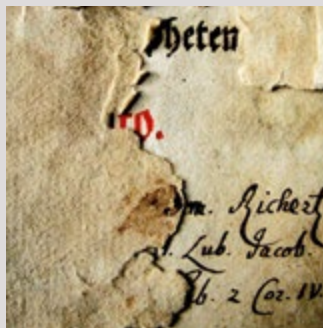 heten
ro.
Im. Richert
l. Lub. Jacob.
b. 2 Cor. IV.